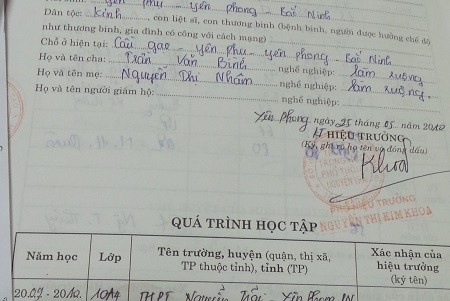 yên phu - yên phong - Bắc Ninh
Dân tộc: kinh, con liệt sĩ, con thương binh (bệnh binh, người được hưởng chế độ
như thương binh, gia đình có công với cách mạng)
Chỗ ở hiện tại: Cầu gạo - yên phu - yên phong - Bắc Ninh
Họ và tên cha: Trần Văn Bình nghề nghiệp: làm ruộng
Họ và tên mẹ: Nguyễn Thị Nhâm nghề nghiệp: làm ruộng.
Họ và tên người giám hộ: nghề nghiệp:
Yên Phong, ngày 25 tháng 05 năm 2010
HIỆU TRƯỞNG
(Ký, ghi rõ họ tên và đóng dấu)
Khoa
PHÓ HIỆU TRƯỞNG
NGUYỄN THỊ KIM KHOA
QUÁ TRÌNH HỌC TẬP
Năm học Lớp Tên trường, huyện (quận, thị xã, TP thuộc tỉnh), tỉnh (TP) Xác nhận của hiệu trưởng (ký tên)
2009 - 2010. 10A4 THPT Nguyễn Trãi - Yên Phong